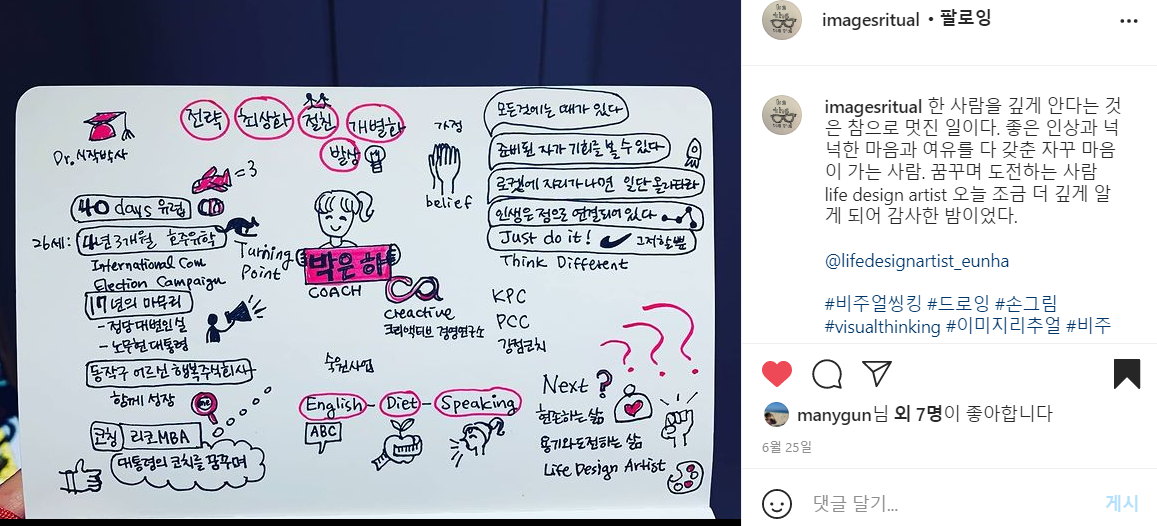 Dr. 시작박사
전략
최상화
절친
개별화
발상
가정
belief
모든것에는 때가 있다
준비된 자가 기회를 볼 수 있다
로켓에 자리가 나면 일단 올라타라
인생은 점으로 연결되어 있다
Just do it! 그저할 뿐
Think Different
=3
40 days 유럽
26세: 4년 3개월 호주유학
International Com
Election Campaign
Turning
Point
박은하
COACH
creactive
크리액티브 경영연구소
KPC
PCC
강점코치
17년의 마무리
- 정당대변인실
- 노무현 대통령
동작구 어르신 행복주식회사
함께 성장
me
코칭 리코MBA
대통령의 코치를 꿈꾸며
숙원사업
English - Diet - Speaking
ABC
Next ?
현존하는 삶
용기와도전하는 삶
Life Design Artist
? ? ?
imagesritual • 팔로잉
imagesritual 한 사람을 깊게 안다는 것
은 참으로 멋진 일이다. 좋은 인상과 넉
넉한 마음과 여유를 다 갖춘 자꾸 마음
이 가는 사람. 꿈꾸며 도전하는 사람
life design artist 오늘 조금 더 깊게 알
게 되어 감사한 밤이었다.
@lifedesignartist_eunha
#비주얼씽킹 #드로잉 #손그림
#visualthinking #이미지리추얼 #비주
manygun님 외 7명이 좋아합니다
6월 25일
댓글 달기...
게시